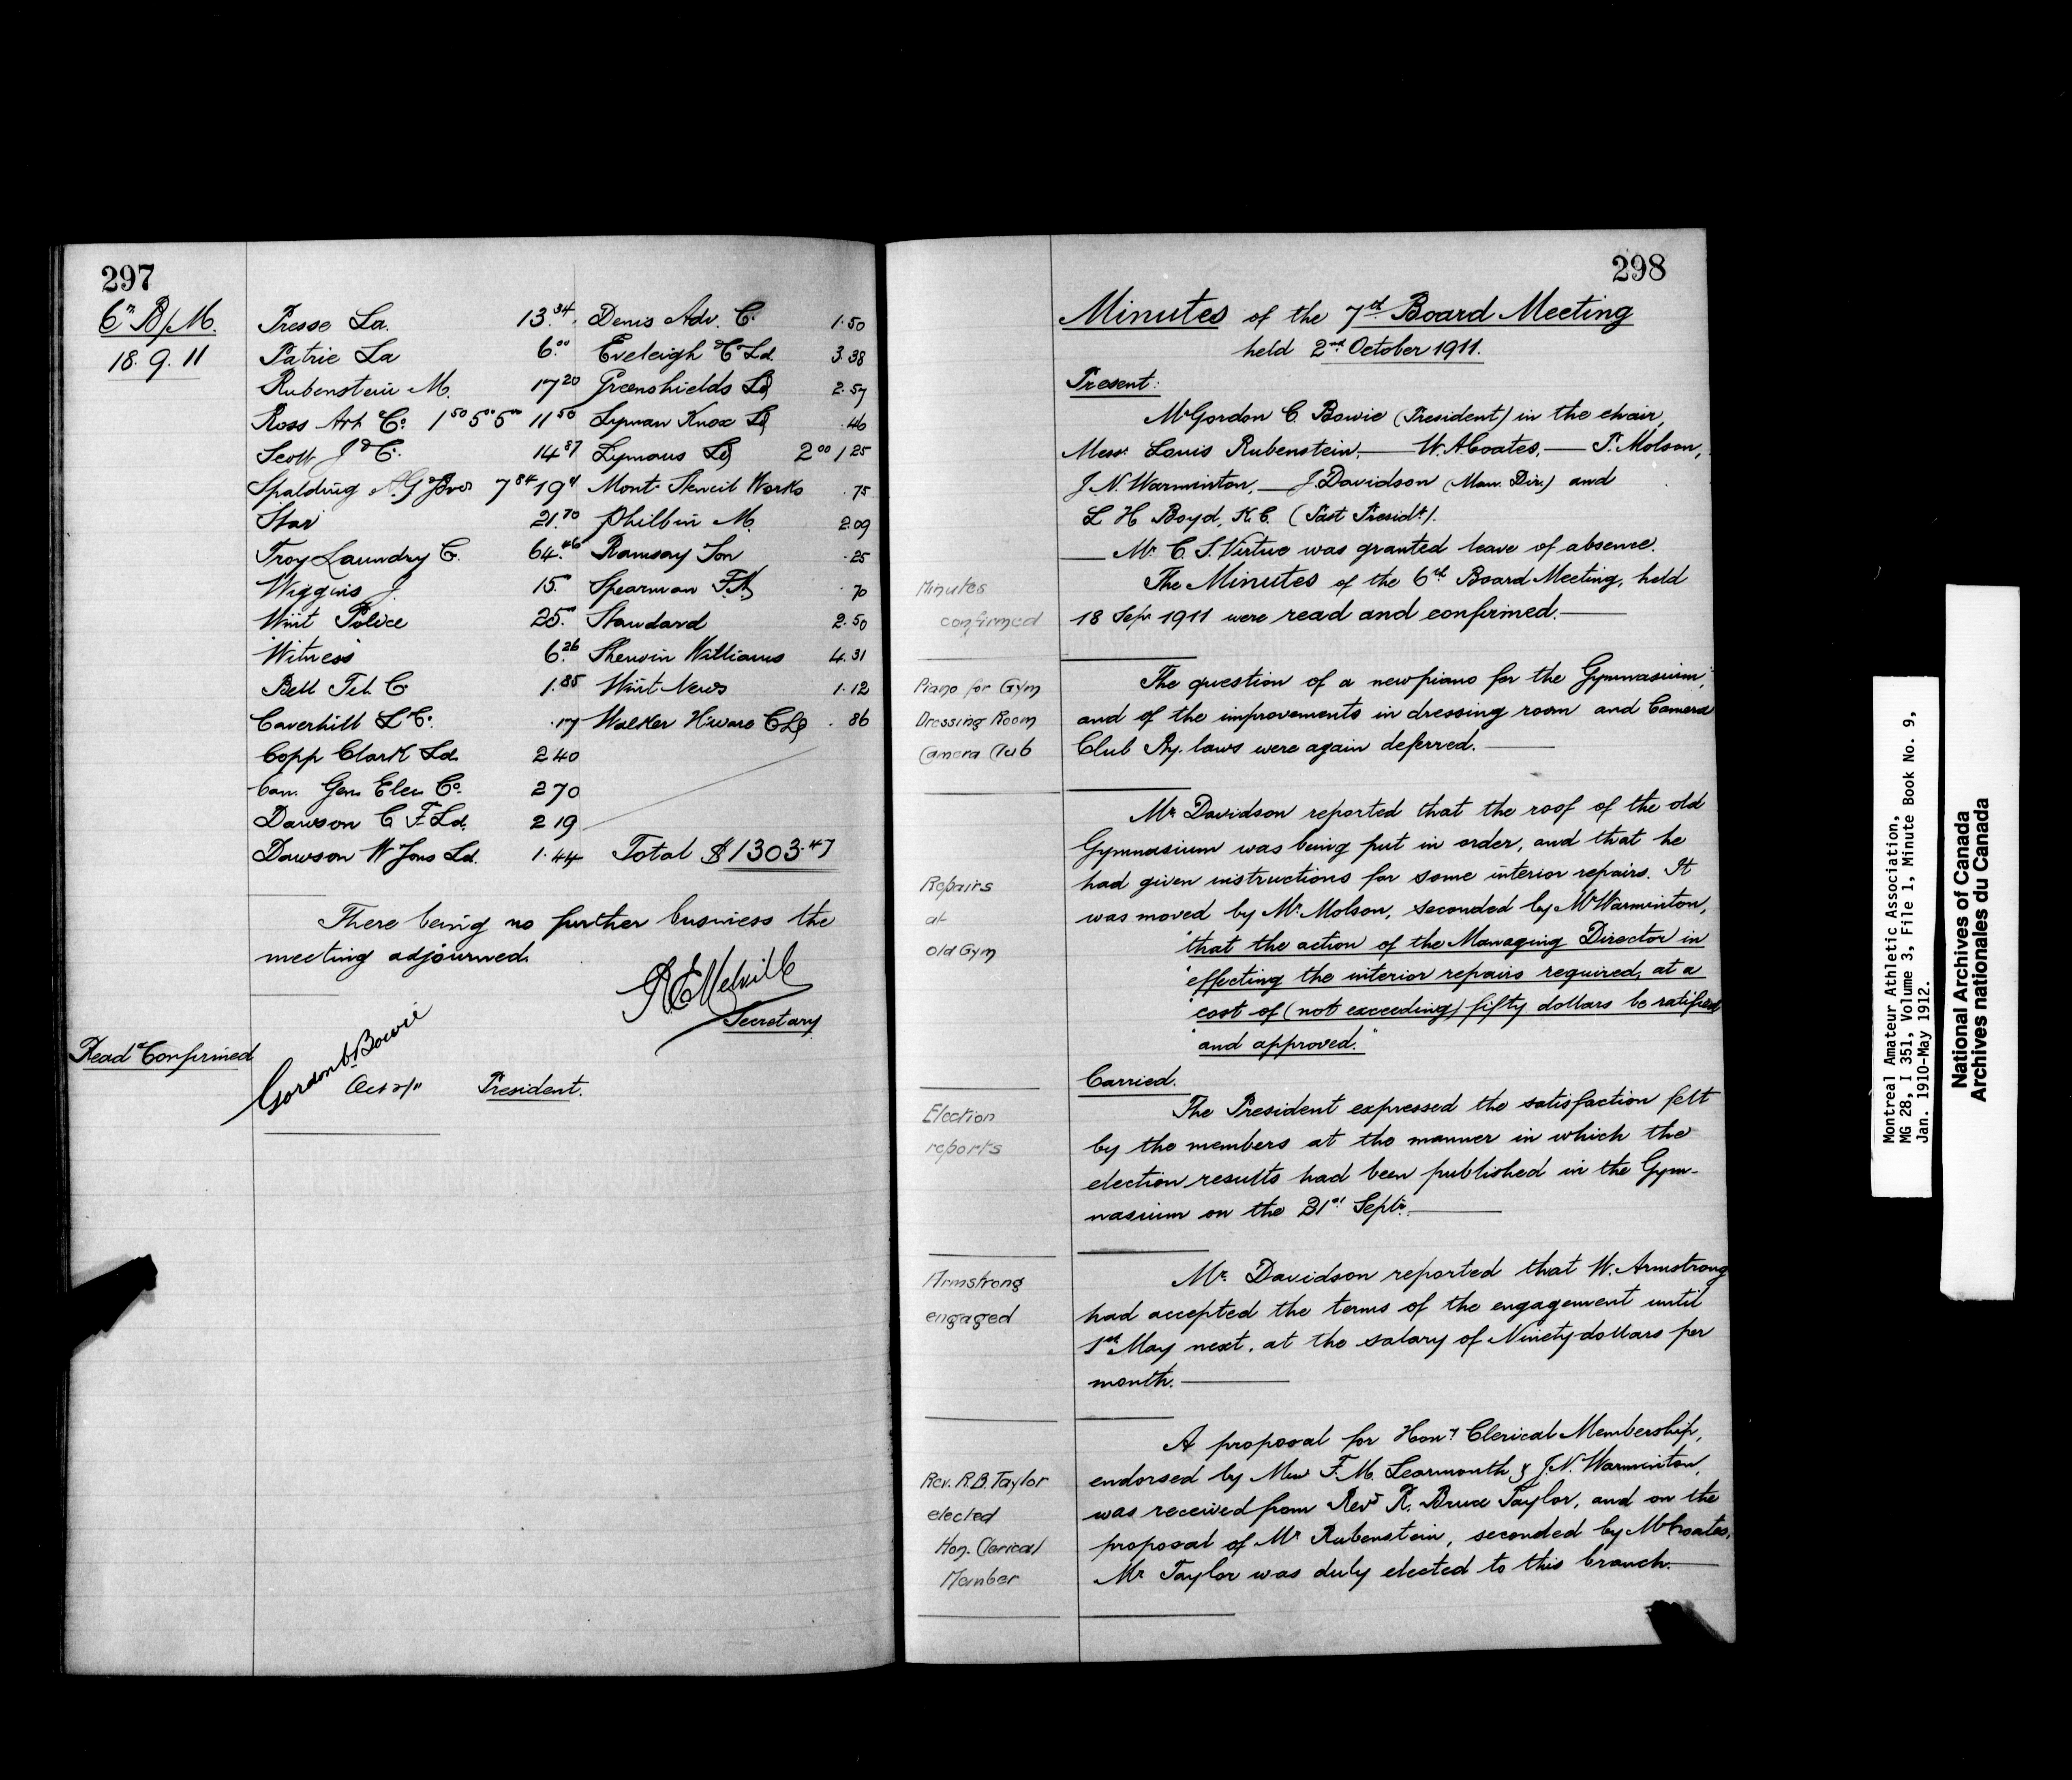 297
6th B/M.
18.9.11
Presse La. 13.34
Patrie La 6.00
Rubenstein M. 17.20
Ross Art Co. 1.50 5.00 5.00 11.50
Scott J & C. 14.87
Spalding A.G. Bros 7.84 19
Star 21.70
Troy Laundry C. 64.46
Wiggins J. 15.
Wmt Police 25.
Witness 6.26
Bell Tel. C. 1.85
Caverhill L Co. .17
Copp Clark Ld. 2 40
Can. Gen Elec Co. 2 70
Dawson C F. Ld. 2 19
Dawson W Jons Ld. 1.44
Denis Adv. C. 1.50
Eveleigh & C Ld. 3 38
Greenshields Ld 2.57
Lyman Knox Ld .46
Lymans Ld 2 00 1 25
Mont. Stencil Works .75
Philbin M. 2.09
Ramsay Son .25
Spearman F.A. .70
Standard 2.50
Sherwin Williams 4.31
Wmt News 1.12
Walker H'ware C Ld .86
Total $1303.47
There being no further business the
meeting adjourned.
A E Melville
Secretary
Read & Confirmed
Gordon C. Bowie
Oct 2/11 President.
298
Minutes of the 7th Board Meeting
held 2nd October 1911.
Present:
Mr Gordon C. Bowie (President) in the chair,
Messrs Louis Rubenstein, — W. A. Coates, — P. Molson,
J. N. Warminton, — J. Davidson (Man. Dir.) and
L H Boyd, K.C. (Past Presidt).
Mr. C. S. Virtue was granted leave of absence.
Minutes
confirmed
The Minutes of the 6th Board Meeting, held
18 Sepr 1911 were read and confirmed.
Piano for Gym
Dressing Room
Camera Club
The question of a new piano for the Gymnasium,
and of the improvements in dressing room and Camera
Club By. laws were again deferred.
Repairs
at
old Gym
Mr Davidson reported that the roof of the old
Gymnasium was being put in order, and that he
had given instructions for some interior repairs. It
was moved by Mr. Molson, seconded by Mr Warminton,
"that the action of the Managing Director in
"effecting the interior repairs required, at a
"cost of (not exceeding) fifty dollars be ratified
"and approved."
Carried.
Election
reports
The President expressed the satisfaction felt
by the members at the manner in which the
election results had been published in the Gym-
nasium on the 21st Septr.
Armstrong
engaged
Mr. Davidson reported that W. Armstrong
had accepted the terms of the engagement until
1st May next, at the salary of Ninety dollars per
month.
Rev. R.B. Taylor
elected
Hon. Clerical
Member
A proposal for Hony Clerical Membership,
endorsed by Messrs F. M. Learmonth & J. N. Warminton,
was received from Revd R. Bruce Taylor, and on the
proposal of Mr Rubenstein, seconded by Mr Coates,
Mr Taylor was duly elected to this branch.
Montreal Amateur Athletic Association,
MG 28, I 351, Volume 3, File 1, Minute Book No. 9,
Jan. 1910-May 1912.
National Archives of Canada
Archives nationales du Canada